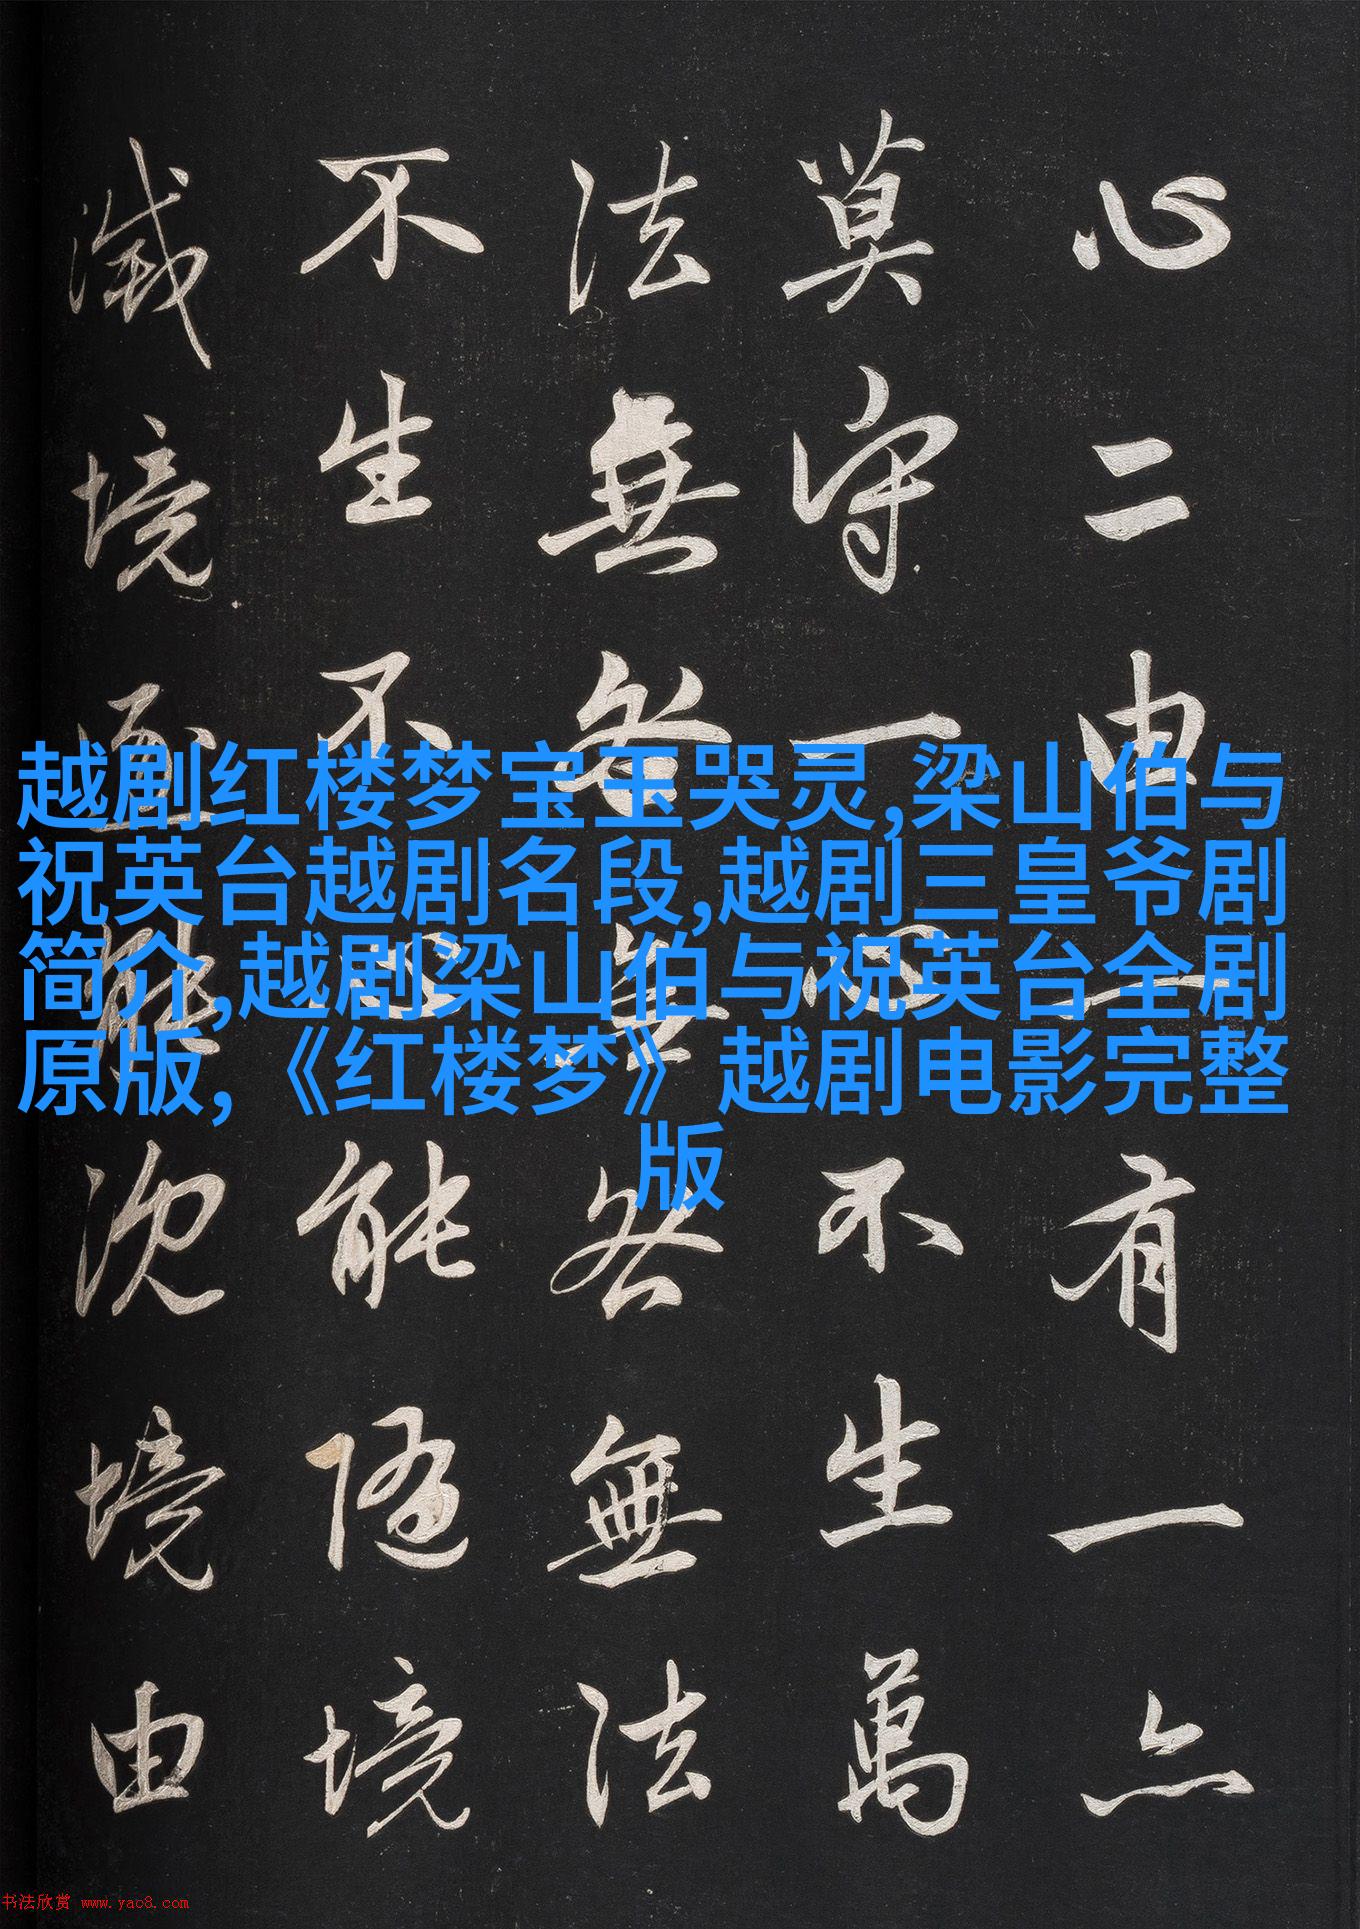 心二由一有一亦
莫守一心不生萬
法無咎無咎無法
不生不心能随境
滅境逐能沉境由
越剧红楼梦宝玉哭灵,梁山伯与
祝英台越剧名段,越剧三皇爷剧
简介,越剧梁山伯与祝英台全剧
原版,《红楼梦》越剧电影完整
版
书法欣赏 www.yac8.com